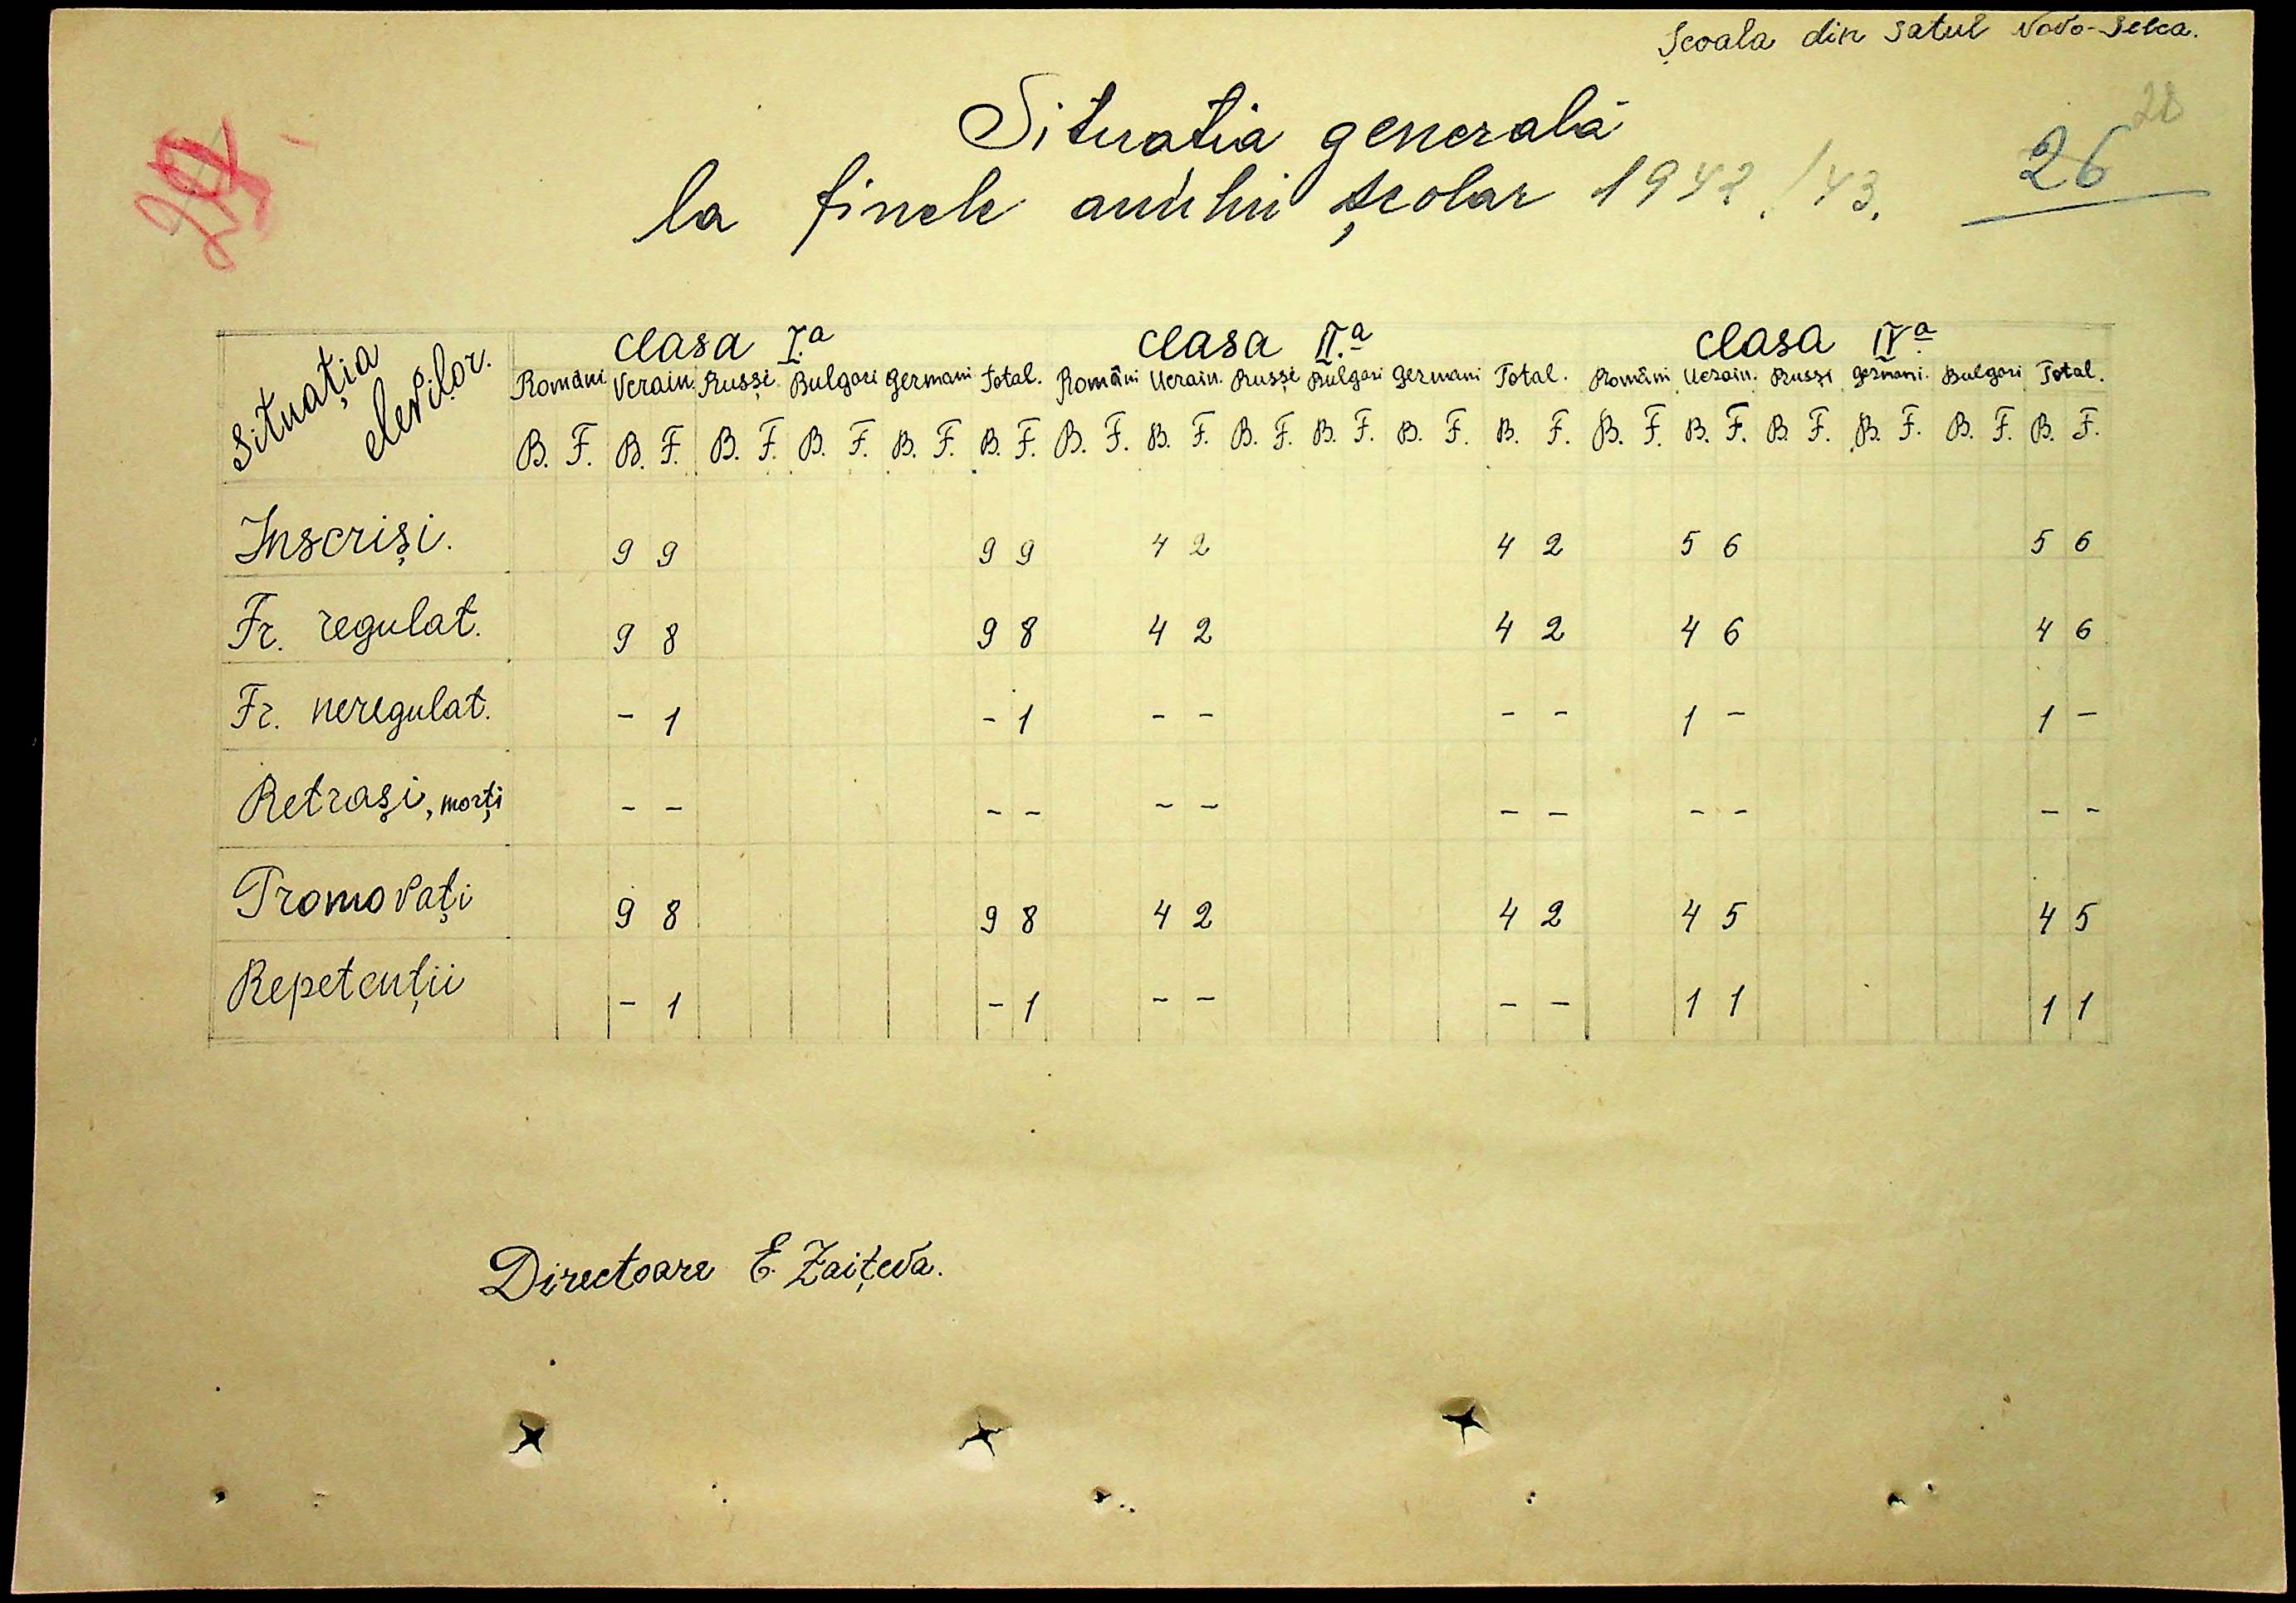 Școala din satul Novo-Selca.
28
26
Situatia generală
la finele anului școlar 1942/43.
Situația elevilor.
clasa I.a clasa II.a IV a clasa
Români Ucrain. Rusși Bulgari Germani Total. Români Ucrain. Rusși Bulgari Germani Total. Români Ucrain. Rusși Germani. Bulgari Total.
B. F. B. F. B. F. B. F. B. F. B. F. B. F. B. F. B. F. B. F. B. F. B. F. B. F. B. F. B. F. B. F. B. F. B. F.
Inscriși. 9 9 9 9 4 2 4 2 5 6 5 6
Fr. regulat. 9 8 9 8 4 2 4 2 4 6 4 6
Fr. neregulat. - 1 - 1 - - - - 1 - 1 -
Retrași, morți - - - - - - - - - - - -
Promovați 9 8 9 8 4 2 4 2 4 5 4 5
Repetenții - 1 - 1 - - - - 1 1 1 1
Directoare E. Zaițeva.